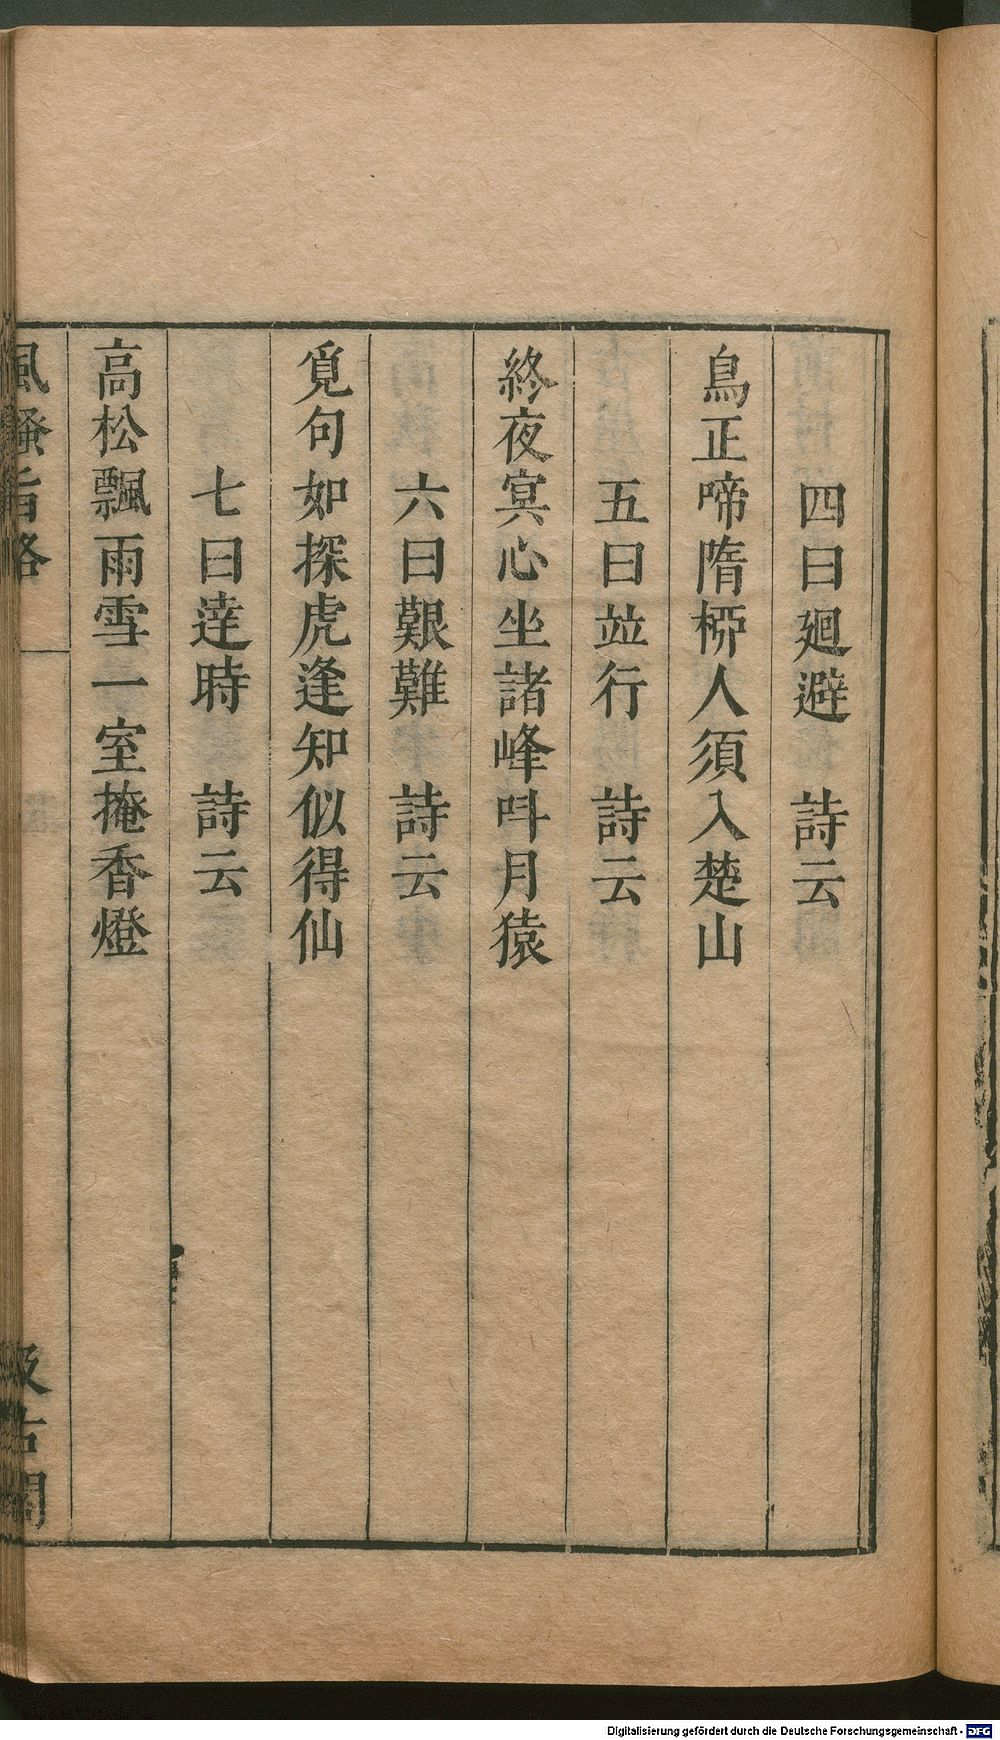 四曰廻避　詩云
鳥正啼隋桺人須入楚山
五曰竝行　詩云
終夜冥心坐諸峰呌月猿
六曰艱難　詩云
覓句如探虎逢知似得仙
七曰達時　詩云
高松飄雨雪一室掩香燈
風騷旨格
汲古閣
Digitalisierung gefördert durch die Deutsche Forschungsgemeinschaft - DFG